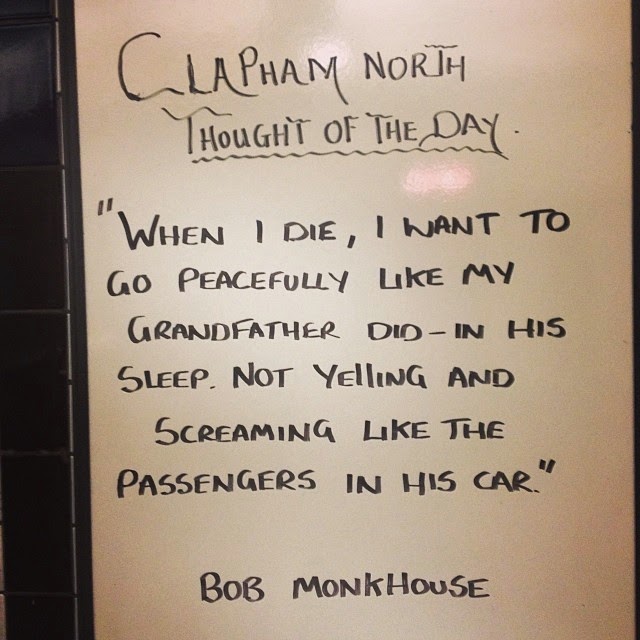 CLAPHAM NORTH
THOUGHT OF THE DAY.
"WHEN I DIE, I WANT TO
GO PEACEFULLY LIKE MY
GRANDFATHER DID-IN HIS
SLEEP. NOT YellING AND
SCREAMING LIKE THE
PASSENGERS IN HIS CAR."
BOB MONKHOUSE